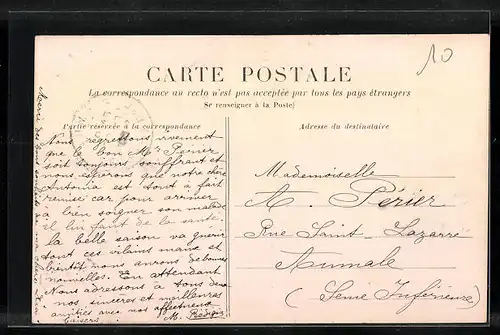 10
CARTE POSTALE
La correspondance au recto n'est pas acceptée par tous les pays étrangers
(Se renseigner à la Poste)
Partie réservée à la correspondance
Adresse du destinataire
Nous regrettons vivement
que le bon Mr
soit toujours souffrant et
nous espérons que notre chère
Antonia est tout à fait
remise car pour arriver
a bien soigner son malade
il lui faut de la santé.
la belle saison va guérir
tout ces vilains maux et
bientôt nous aurons de bonnes
nouvelles. En attendant
Nous adressons à tous deux
nos sincères et meilleures
amitiés avec nos affectueux
baisers. M.
Mademoiselle
A. Périer
Rue Saint-Lazarre
Aumale
(Seine Inférieure)